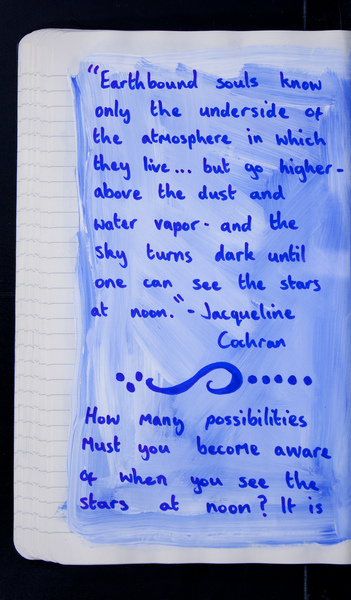 "Earthbound souls know
only the underside of
the atmosphere in which
they live... but go higher-
above the dust and
water vapor- and the
sky turns dark until
one can see the stars
at noon."-Jacqueline
Cochran
How many possibilities
Must you become aware
of when you see the
stars at noon? It is